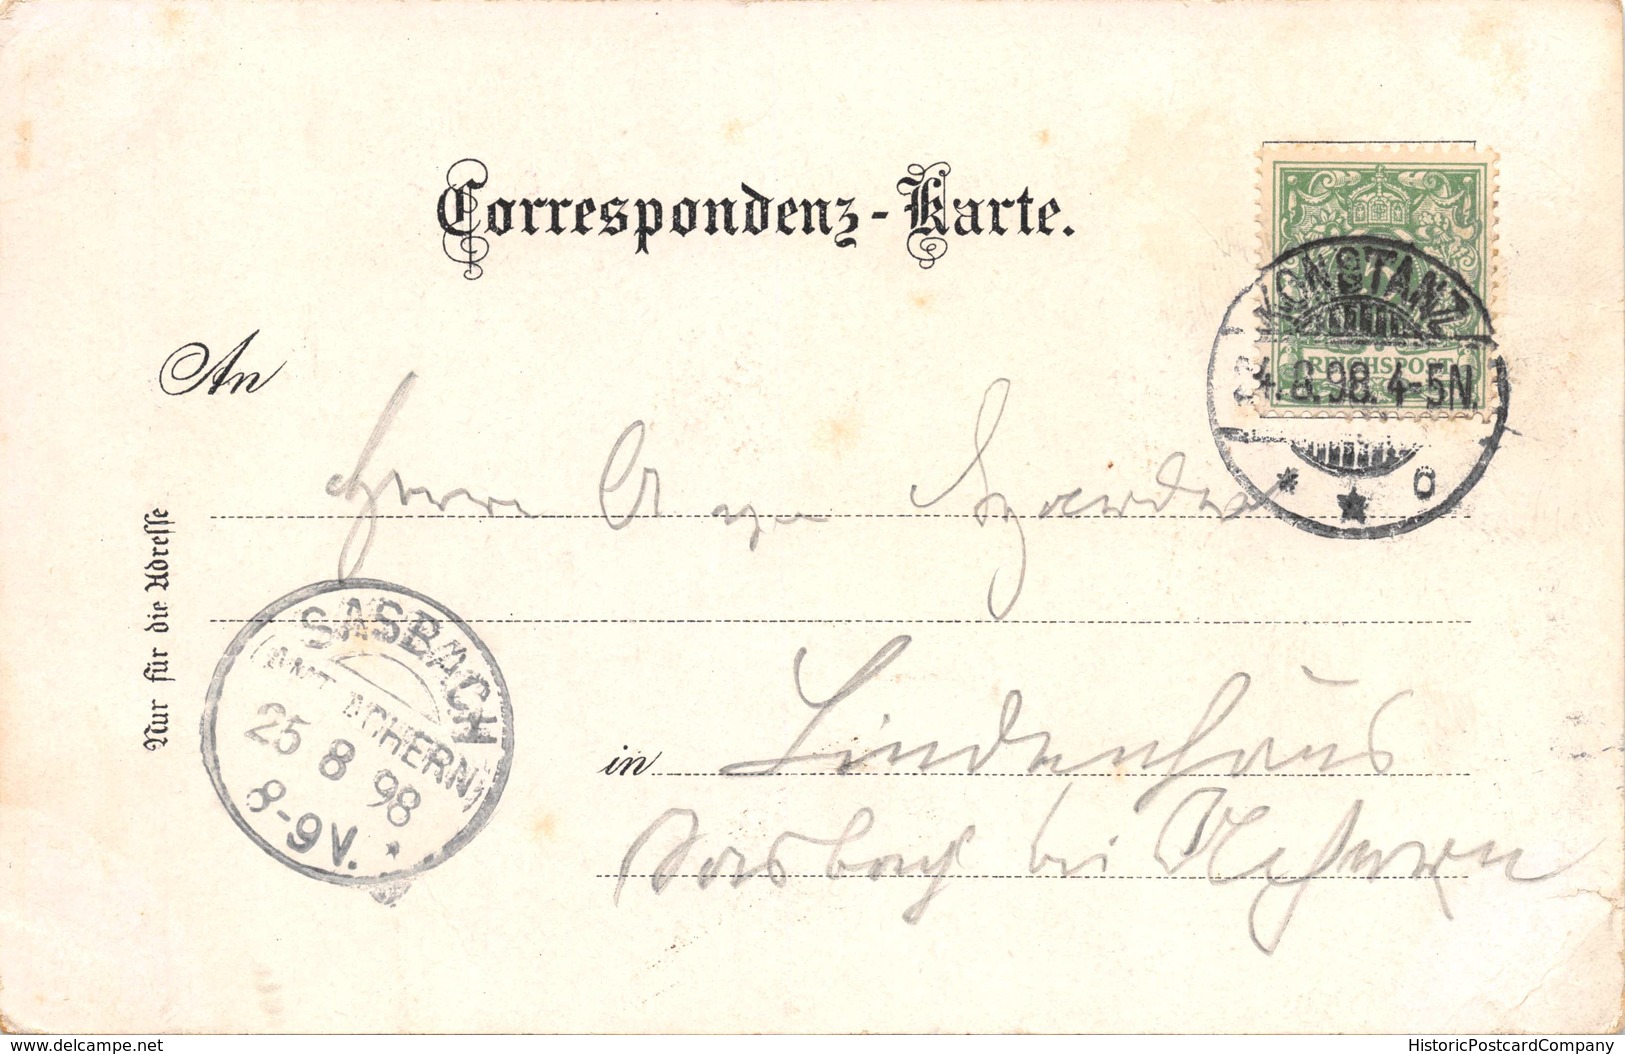 Correspondenz-Karte.
KONSTANZ
REICHSPOST
24.8.98.4-5N.
* ★ c
An
Herrn
Nur für die Adresse
SASBACH
(AMT ACHERN)
25 8 98
8-9V.
in Lindenhaus
Sasbach bei Achern
delcampe.net
HistoricPostcardCompany